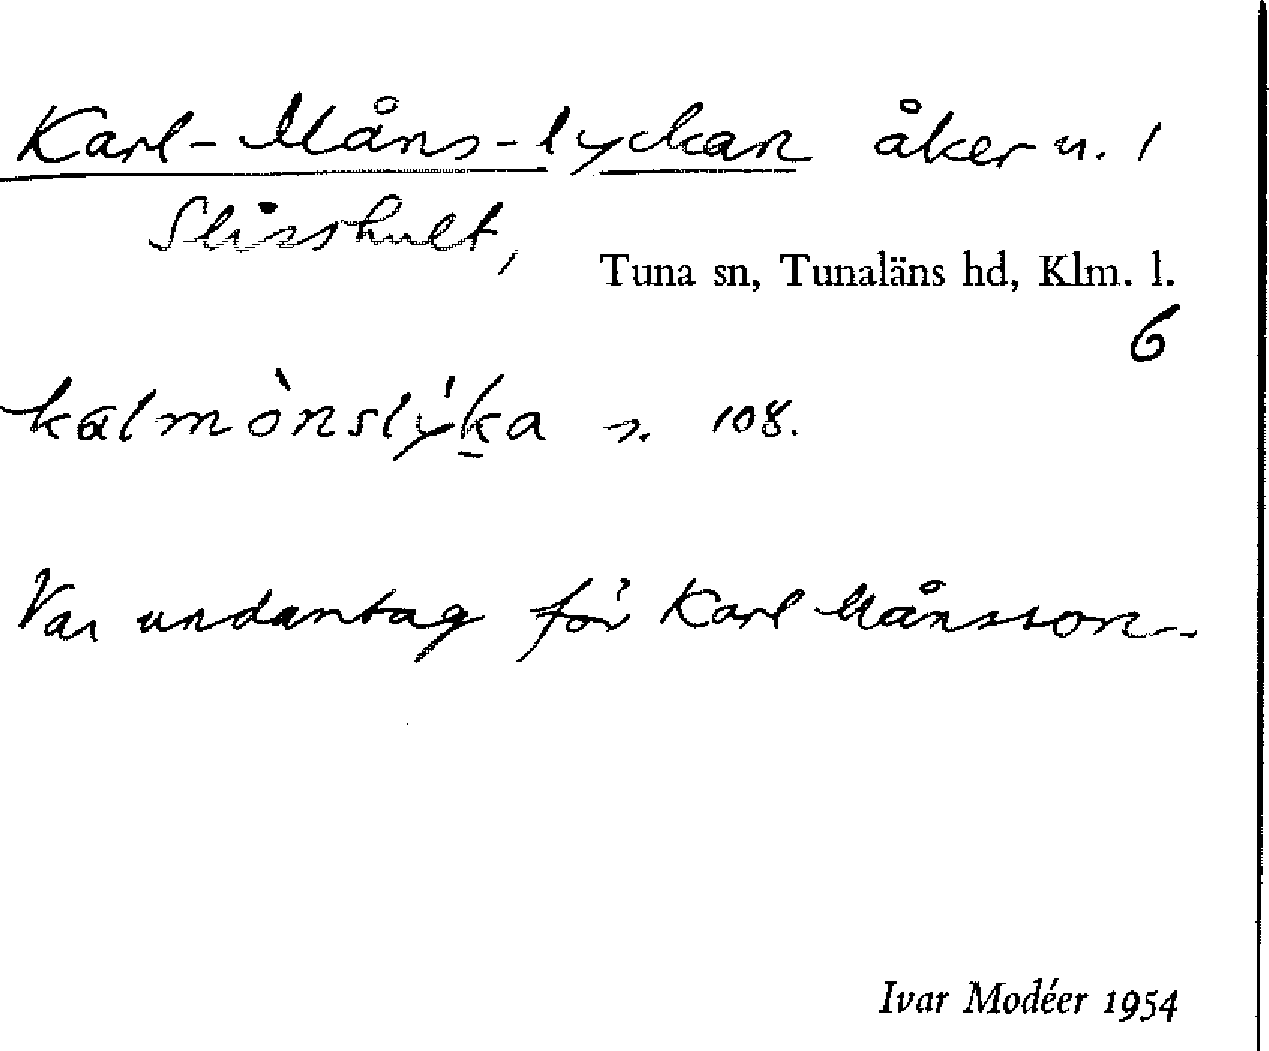 Karl-Måns-lyckan åker u. 1
Slisshult,
Tuna sn, Tunaläns hd, Klm. l.
6
kalmònslýka s. 108.
Var undantag för Karl Månsson.
Ivar Modéer 1954